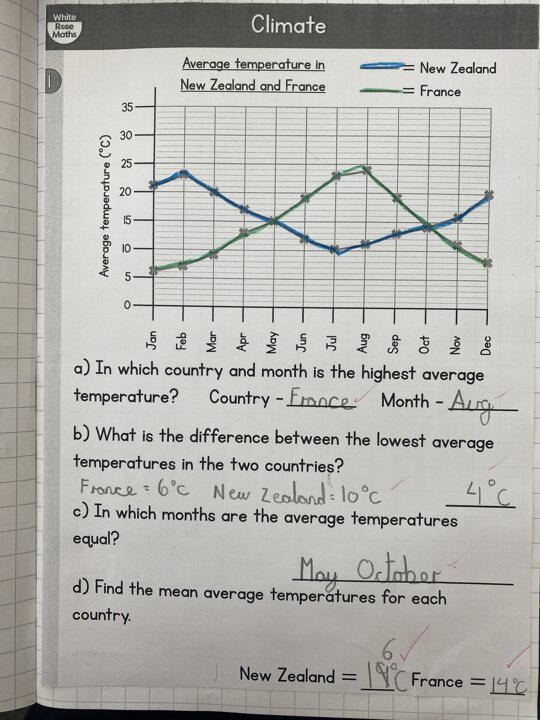 White
Rose
Maths
Climate
Average temperature in
New Zealand and France
= New Zealand
= France
Average temperature (°C)
35
30
25
20
15
10
5
0
Jan Feb Mar Apr May Jun Jul Aug Sep Oct Nov Dec
a) In which country and month is the highest average
temperature? Country - France Month - Aug
b) What is the difference between the lowest average
temperatures in the two countries?
France = 6°C New Zealand: 10°C 4°C
c) In which months are the average temperatures
equal?
May October
d) Find the mean average temperatures for each
country.
6
New Zealand = 1 °C France = 14°C